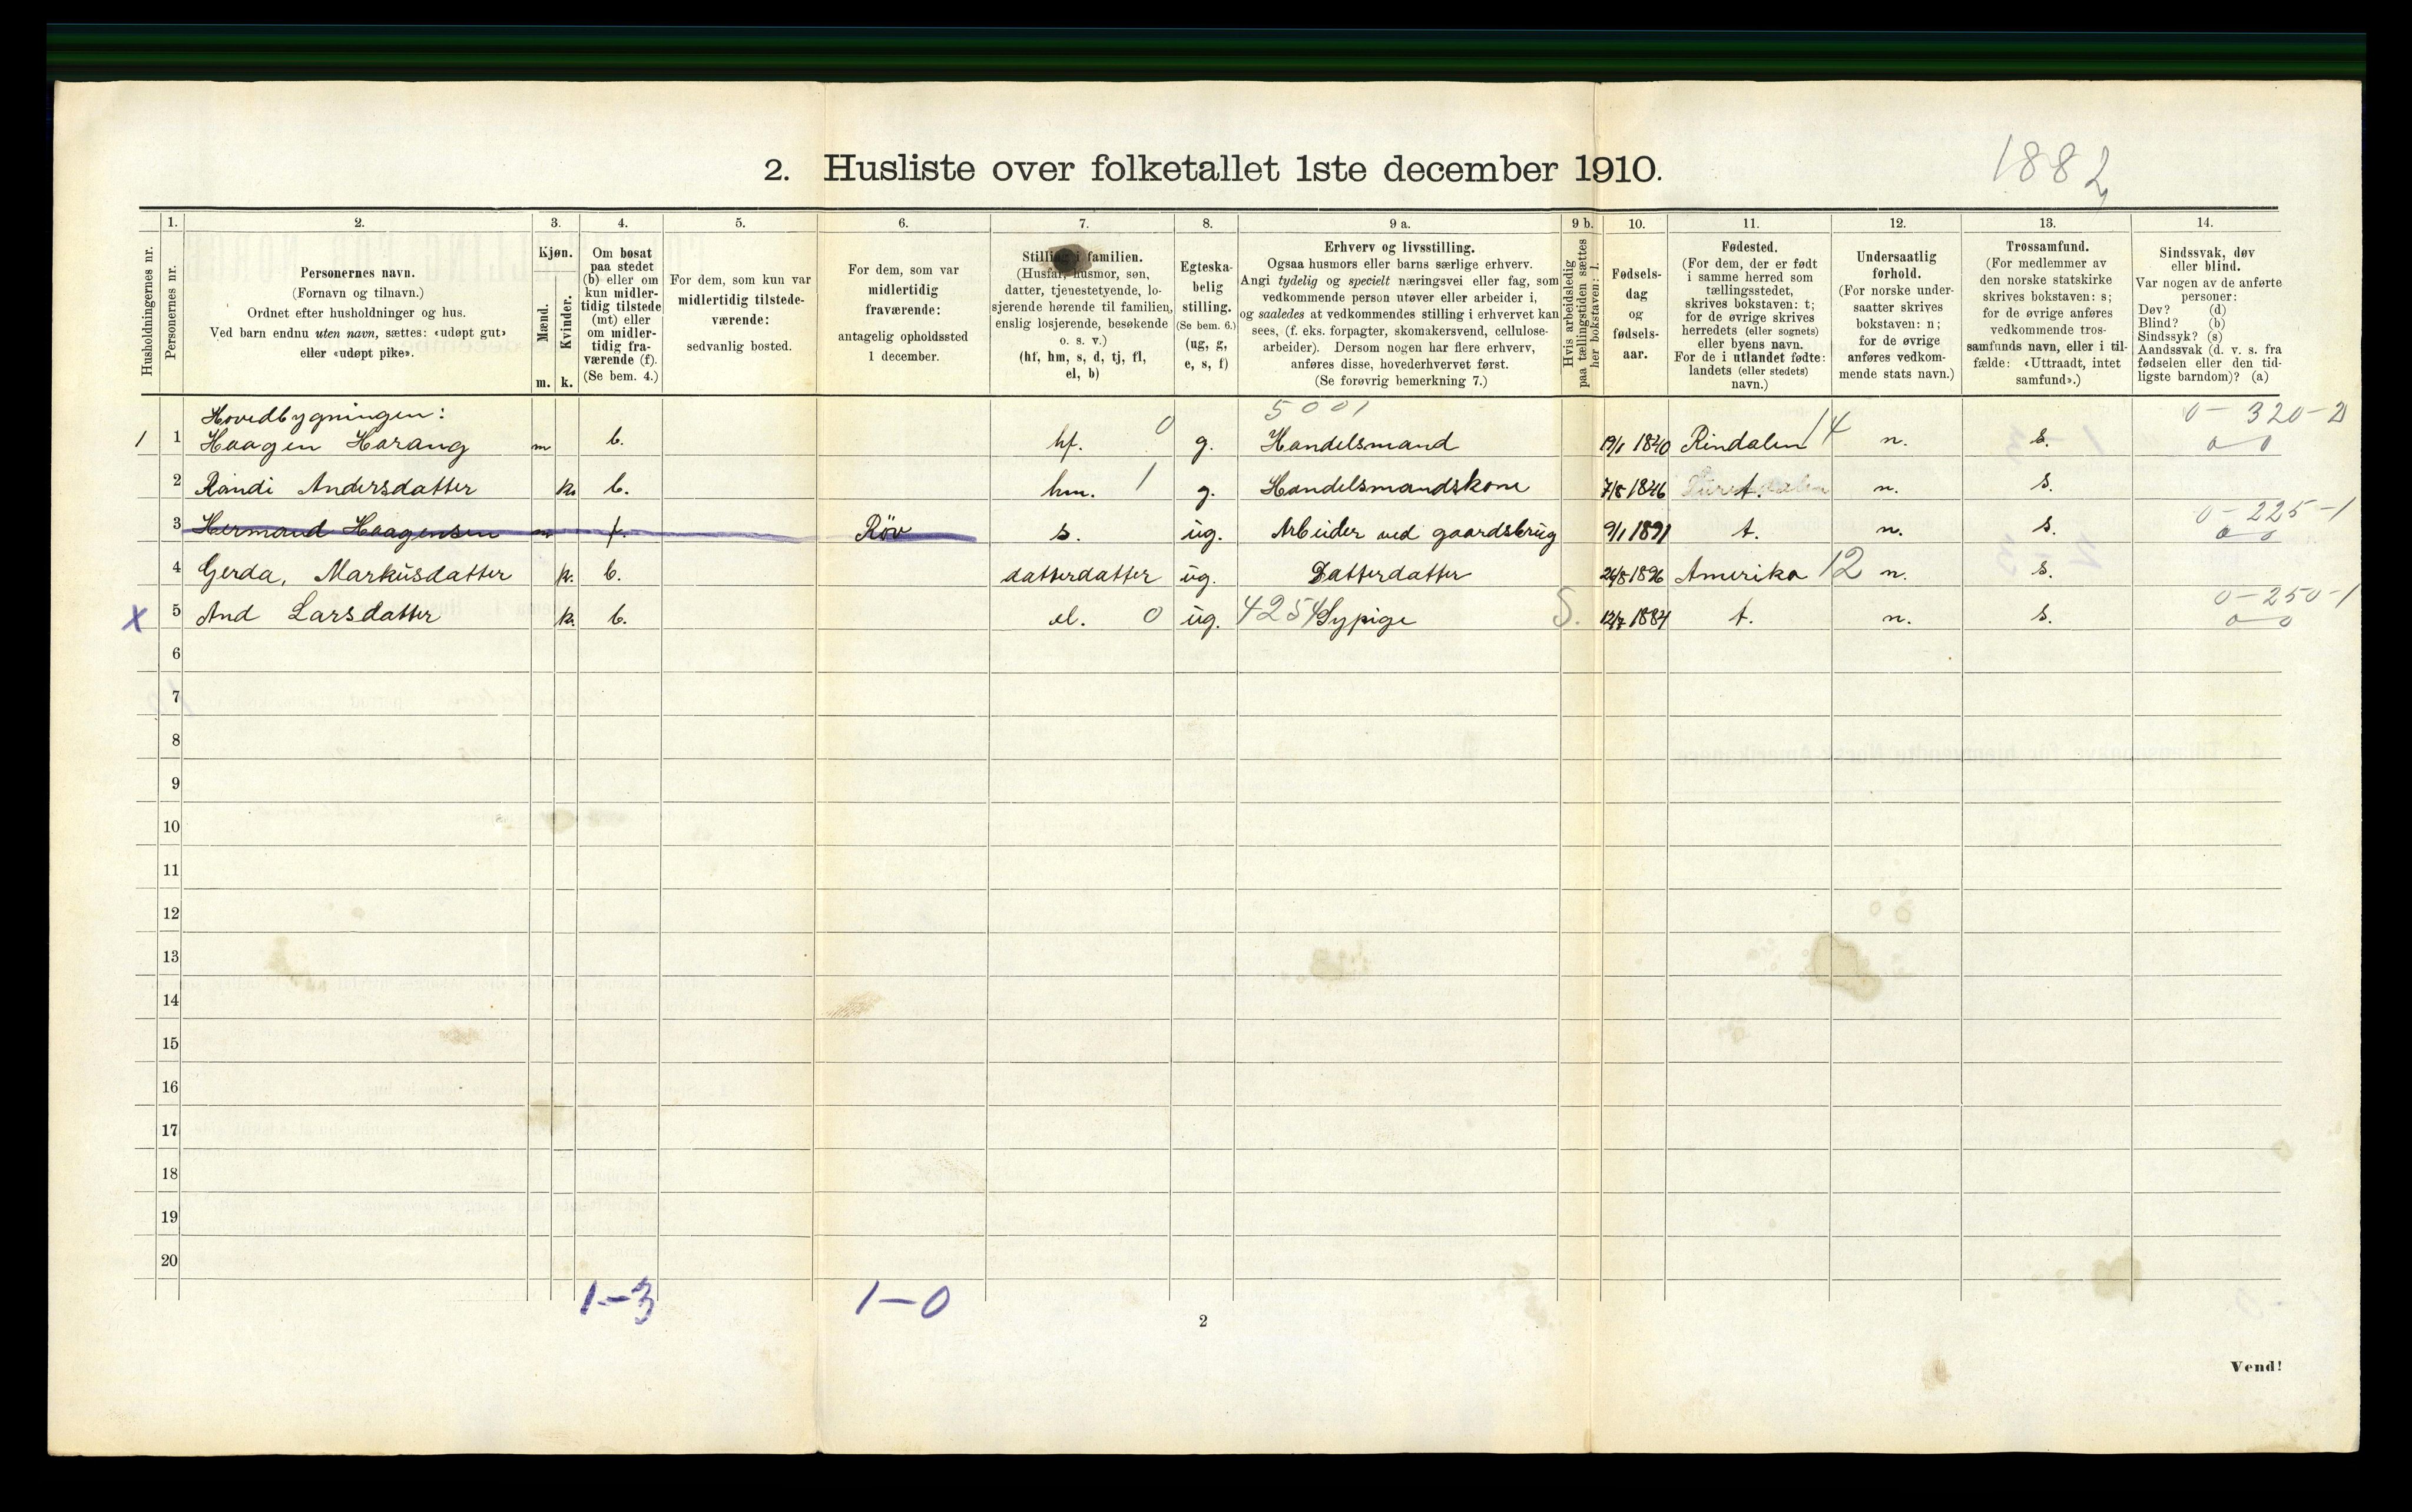 1882
2. Husliste over folketallet 1ste december 1910.
1. 2. 3. 4. 5. 6. 7. 8. 9 a. 9 b. 10. 11. 12. 13. 14.
Husholdningernes nr.
Personernes nr.
Personernes navn.
(Fornavn og tilnavn.)
Ordnet efter husholdninger og hus.
Ved barn endnu uten navn, sættes: «udøpt gut»
eller «udøpt pike».
Kjøn.
Mænd.
Kvinder.
m. k.
Om bosat
paa stedet
(b) eller om
kun midler-
tidig tilstede
(mt) eller
om midler-
tidig fra-
værende (f).
(Se bem. 4.)
For dem, som kun var
midlertidig tilstede-
værende:
sedvanlig bosted.
For dem, som var
midlertidig
fraværende:
antagelig opholdssted
1 december.
Stilling i familien.
(Husfar, husmor, søn,
datter, tjenestetyende, lo-
sjerende hørende til familien,
enslig losjerende, besøkende
o. s. v.)
(hf, hm, s, d, tj, fl,
el, b)
Egteska-
belig
stilling.
(Se bem. 6.)
(ug, g,
e, s, f)
Erhverv og livsstilling.
Ogsaa husmors eller barns særlige erhverv.
Angi tydelig og specielt næringsvei eller fag, som
vedkommende person utøver eller arbeider i,
og saaledes at vedkommendes stilling i erhvervet kan
sees, (f. eks. forpagter, skomakersvend, cellulose-
arbeider). Dersom nogen har flere erhverv,
anføres disse, hovederhvervet først.
(Se forøvrig bemerkning 7.)
Hvis arbeidsledig
paa tællingstiden sættes
her bokstaven: l.
Fødsels-
dag
og
fødsels-
aar.
Fødested.
(For dem, der er født
i samme herred som
tællingsstedet,
skrives bokstaven: t;
for de øvrige skrives
herredets (eller sognets)
eller byens navn.
For de i utlandet fødte:
landets (eller stedets)
navn.)
Undersaatlig
forhold.
(For norske under-
saatter skrives
bokstaven: n;
for de øvrige
anføres vedkom-
mende stats navn.)
Trossamfund.
(For medlemmer av
den norske statskirke
skrives bokstaven: s;
for de øvrige anføres
vedkommende tros-
samfunds navn, eller i til-
fælde: «Uttraadt, intet
samfund».)
Sindssvak, døv
eller blind.
Var nogen av de anførte
personer:
Døv? (d)
Blind? (b)
Sindssyk? (s)
Aandssvak (d. v. s. fra
fødselen eller den tid-
ligste barndom)? (a)
Hovedbygningen: 5001 0-320-2
1 1 Haagen Harang m b. hf. 0 g. Handelsmand 19/1 1840 Rindalen 14 n. s. 0 0
2 Randi Andersdatter k. b. hm. 1 g. Handelsmandskone 7/8 1846 t. n. s.
3 Hermand Haagensen m f. Röv s. ug. Arbeider ved gaardsbrug 9/1 1891 t. n. s. 0-225-1 0 0
4 Gerda, Markusdatter k. b. datterdatter ug. Datterdatter 24/8 1896 Amerika 12 n. s.
X 5 And Larsdatter k. b. el. 0 ug. 4254 Sypige S. 12/7 1884 t. n. s. 0-250-1 0 0
6
7
8
9
10
11
12
13
14
15
16
17
18
19
20
1-3 1-0
2
Vend!